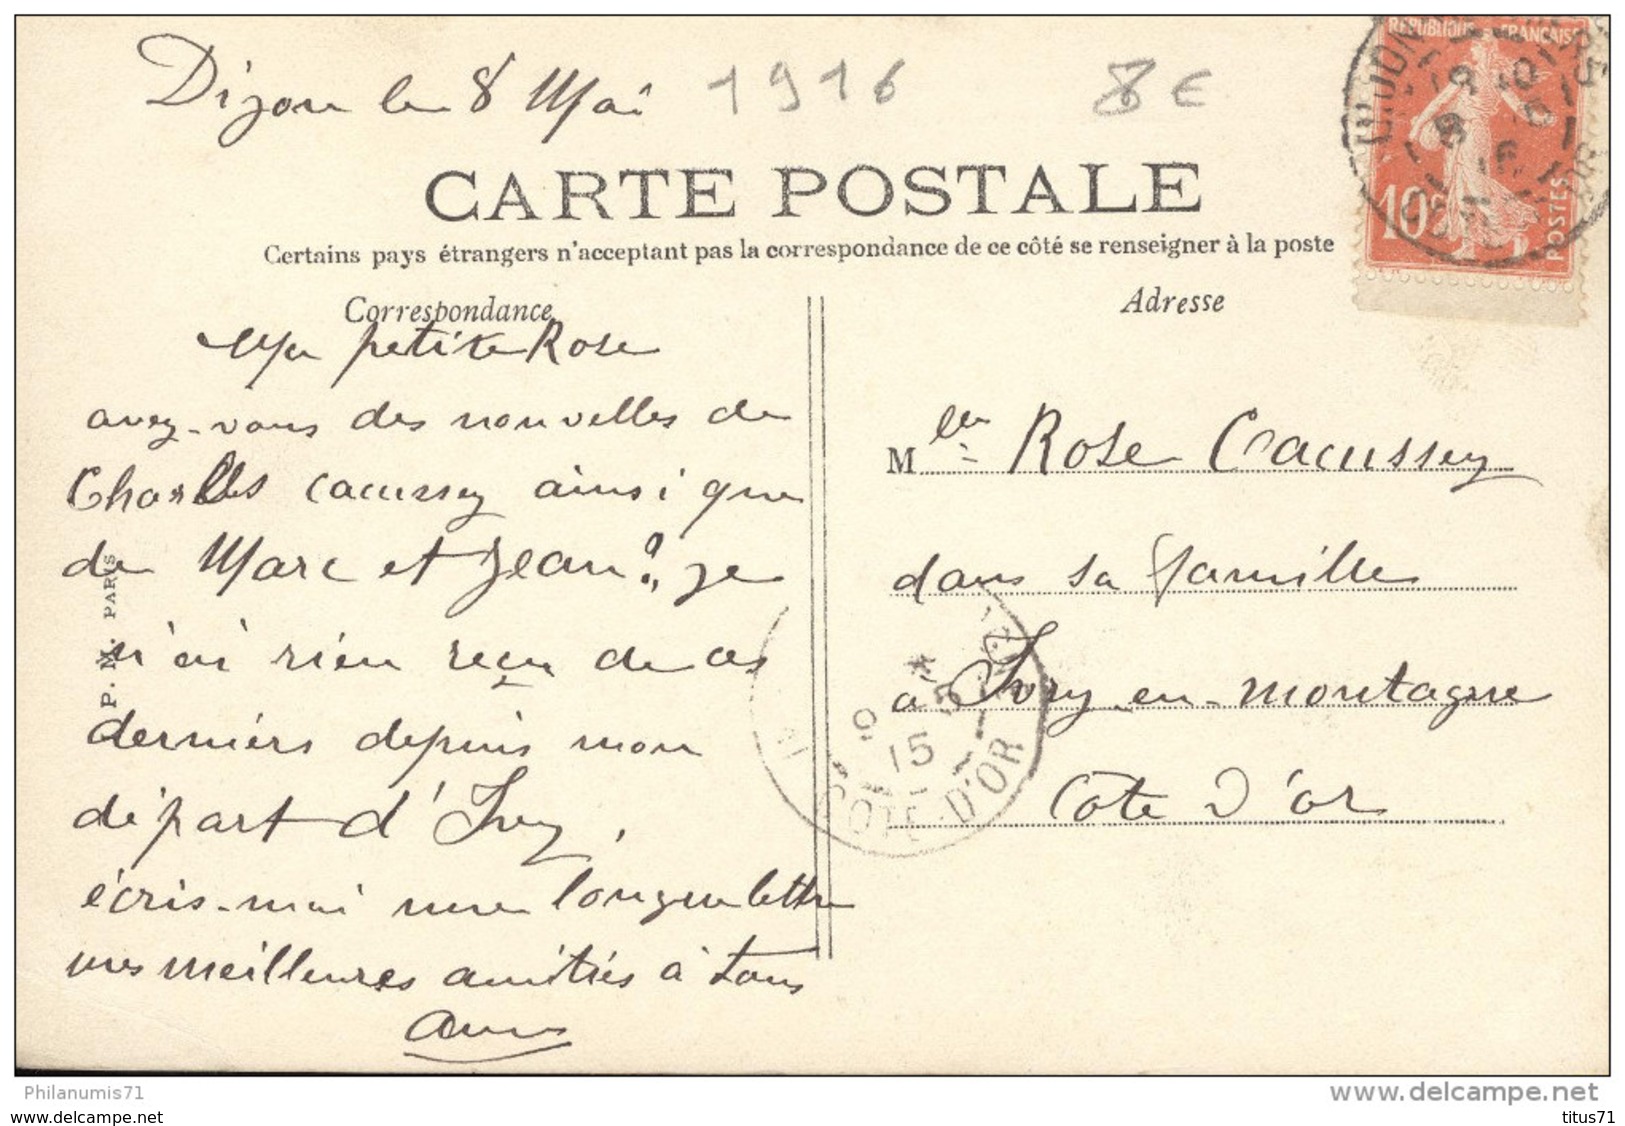 Dijon le 8 Mai 1916 8€
REPUBLIQUE FRANÇAISE
10
POSTES
DIJON
CARTE POSTALE
Certains pays étrangers n'acceptant pas la correspondance de ce côté se renseigner à la poste
Correspondance
Ma petite Rose
avez-vous des nouvelles de
Charles Cacussey ainsi que
de Marc et Jean? je
n'ai rien reçu de ces
derniers depuis mon
départ d'Ivry.
écris-moi une longue lettre
mes meilleures amitiés à tous
P. M. PARIS
Adresse
Mlle Rose Cacussey
dans sa famille
à Ivry-en-montagne
Côte d'or
9 5
15
COTE-D'OR
Philanumis71
www.delcampe.com
www.delcampe.net
titus71